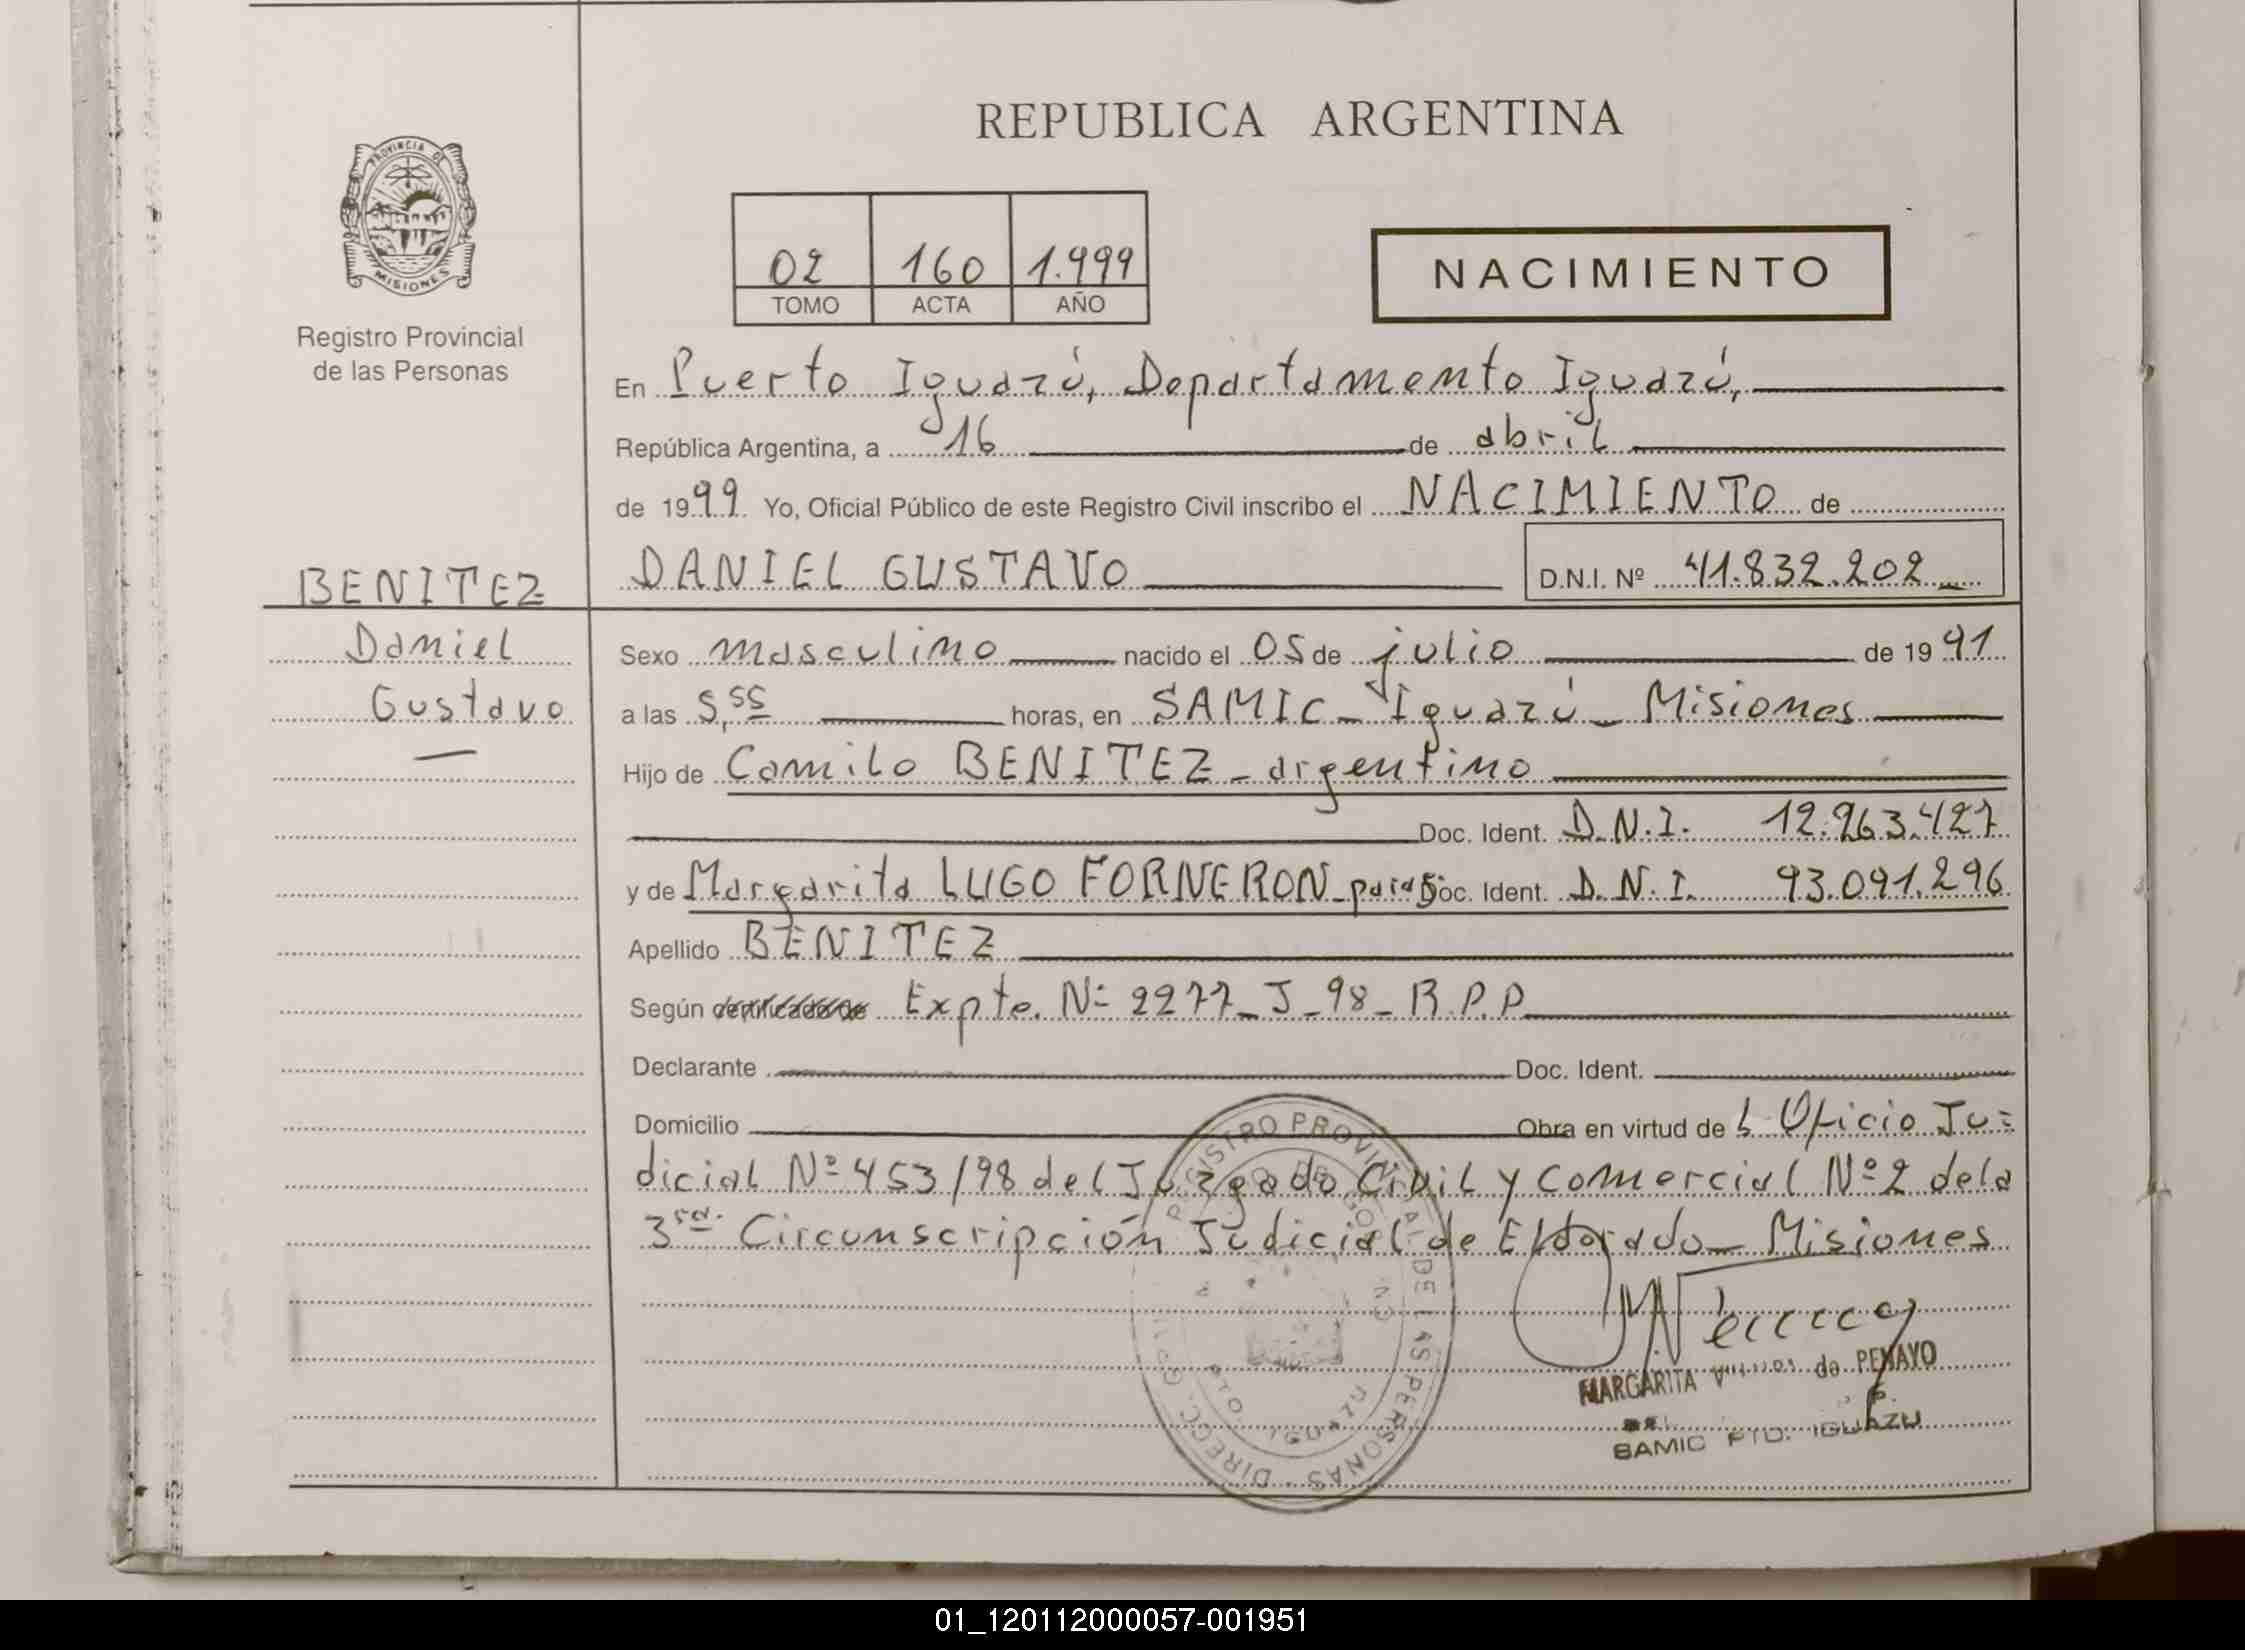 REPUBLICA ARGENTINA
PROVINCIA DE
MISIONES
Registro Provincial
de las Personas
02 160 1.999
TOMO ACTA AÑO
NACIMIENTO
En Puerto Iguazú, Departamento Iguazú,
República Argentina, a 16 de abril
de 1999 Yo, Oficial Público de este Registro Civil inscribo el NACIMIENTO de
BENITEZ
DANIEL GUSTAVO D.N.I. Nº 41.832.202
Daniel
Gustavo
Sexo masculino nacido el 05 de julio de 1991
a las 5,55 horas, en SAMIC - Iguazú - Misiones
Hijo de Camilo BENITEZ - argentino
Doc. Ident. D.N.I. 12.263.427
y de Margarita LUGO FORNERON - Doc. Ident. D.N.I. 93.091.296
Apellido BENITEZ
Según certificado de Expte. Nº 2277 - J - 98 - R.P.P
Declarante Doc. Ident.
Domicilio Obra en virtud de Oficio Ju=
dicial Nº 453/98 del Juzgado Civil y Comercial Nº 2 de la
3ra. Circunscripción Judicial de Eldorado - Misiones
REGISTRO PROVINCIAL DE LAS PERSONAS - DIRECC.
MARGARITA de PENAYO
SAMIC PTO. IGUAZU
01_120112000057-001951